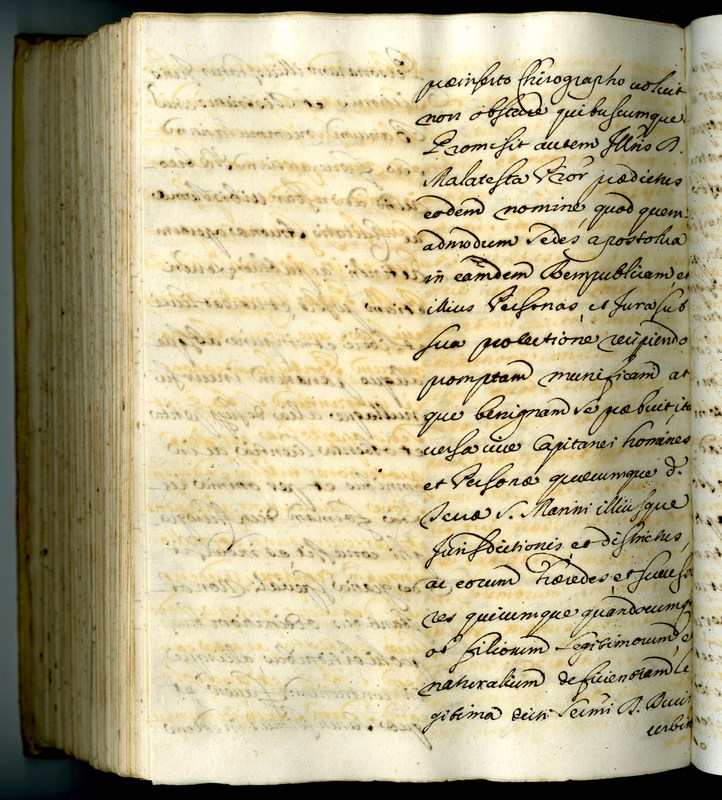 præinserto Chirographo voluit
non obstare quibuscumque.
Promisit autem Illris D.
Malatesta Prior prædictus
eodem nomine, quod quem
admodum Sedes apostolica
in eamdem Rempublicam et
illius Personas, et Jura sub
sua protectione recipiendo
promptam munificam at
que benignam se præbuit, ita
versa vice Capitanei homines
et Personæ quæcumque d.
Terræ S. Marini illiusque
Jurisdictionis, et districtus,
ac eorum Hæredes et successo
res quicumque quandocumq
ob filiorum legitimorum, et
naturalium deficientiam le
gitima dicti Sermi D. Ducis
Urbin